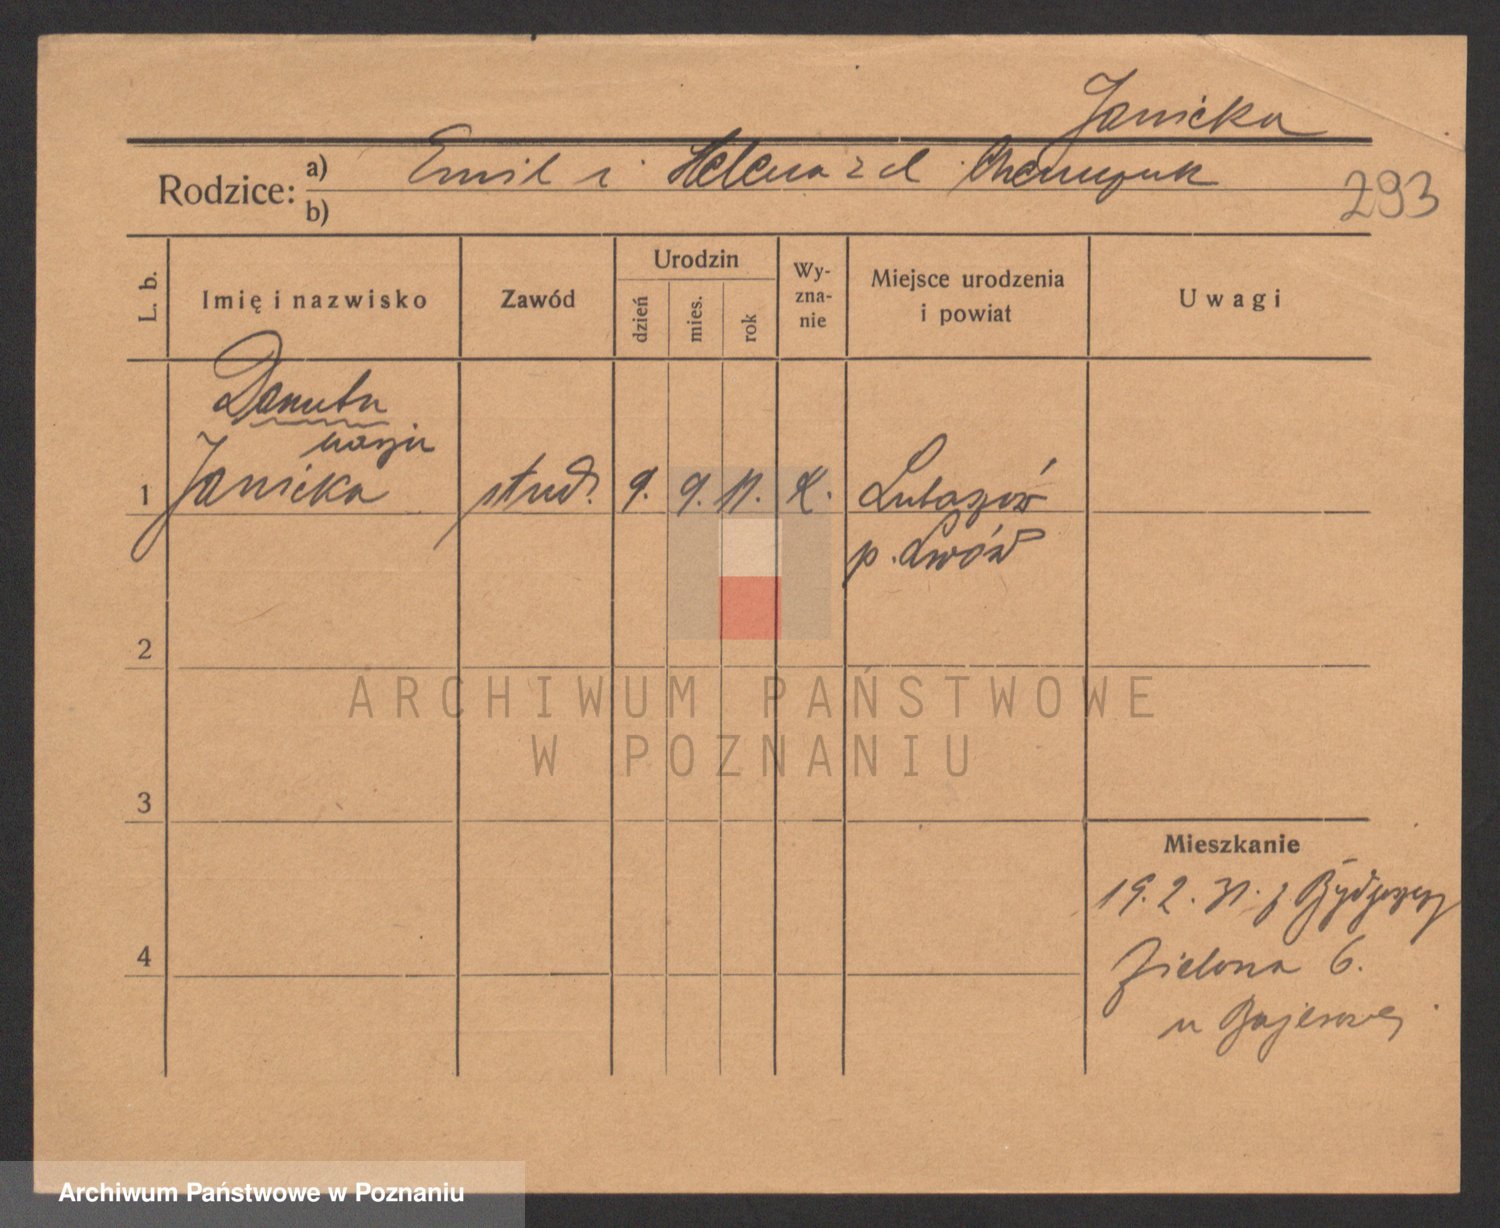 Janicka
Rodzice: a) Emil i Helena z d.
b)
293
L. b.
Imię i nazwisko
Zawód
Urodzin
dzień
mies.
rok
Wy-
zna-
nie
Miejsce urodzenia
i powiat
Uwagi
Danuta
1 Janicka stud. 9. 9. 11. K.
p. Lwów
2
3
4
Mieszkanie
19. 2. 31. z Bydgoszczy
Zielona 6.
u
ARCHIWUM PAŃSTWOWE
W POZNANIU
Archiwum Państwowe w Poznaniu